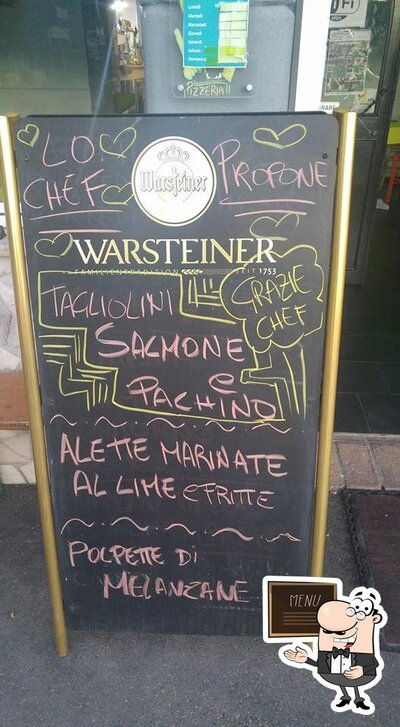 Lunedì
Martedì
Mercoledì
Giovedì
Venerdì
Sabato
Domenica
PIZZERIA
FI
LO CHEF PROPONE
Warsteiner
WARSTEINER
FAMILIENTRADITION SEIT 1753
TAGLIOLINI
SALMONE
E
PACHINO
GRAZIE
CHEF
ALETTE MARINATE
AL LIME E FRITTE
POLPETTE DI
MELANZANE
MENU